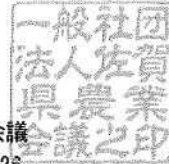 一般社団
法人佐賀
県農業
会議之印
会議